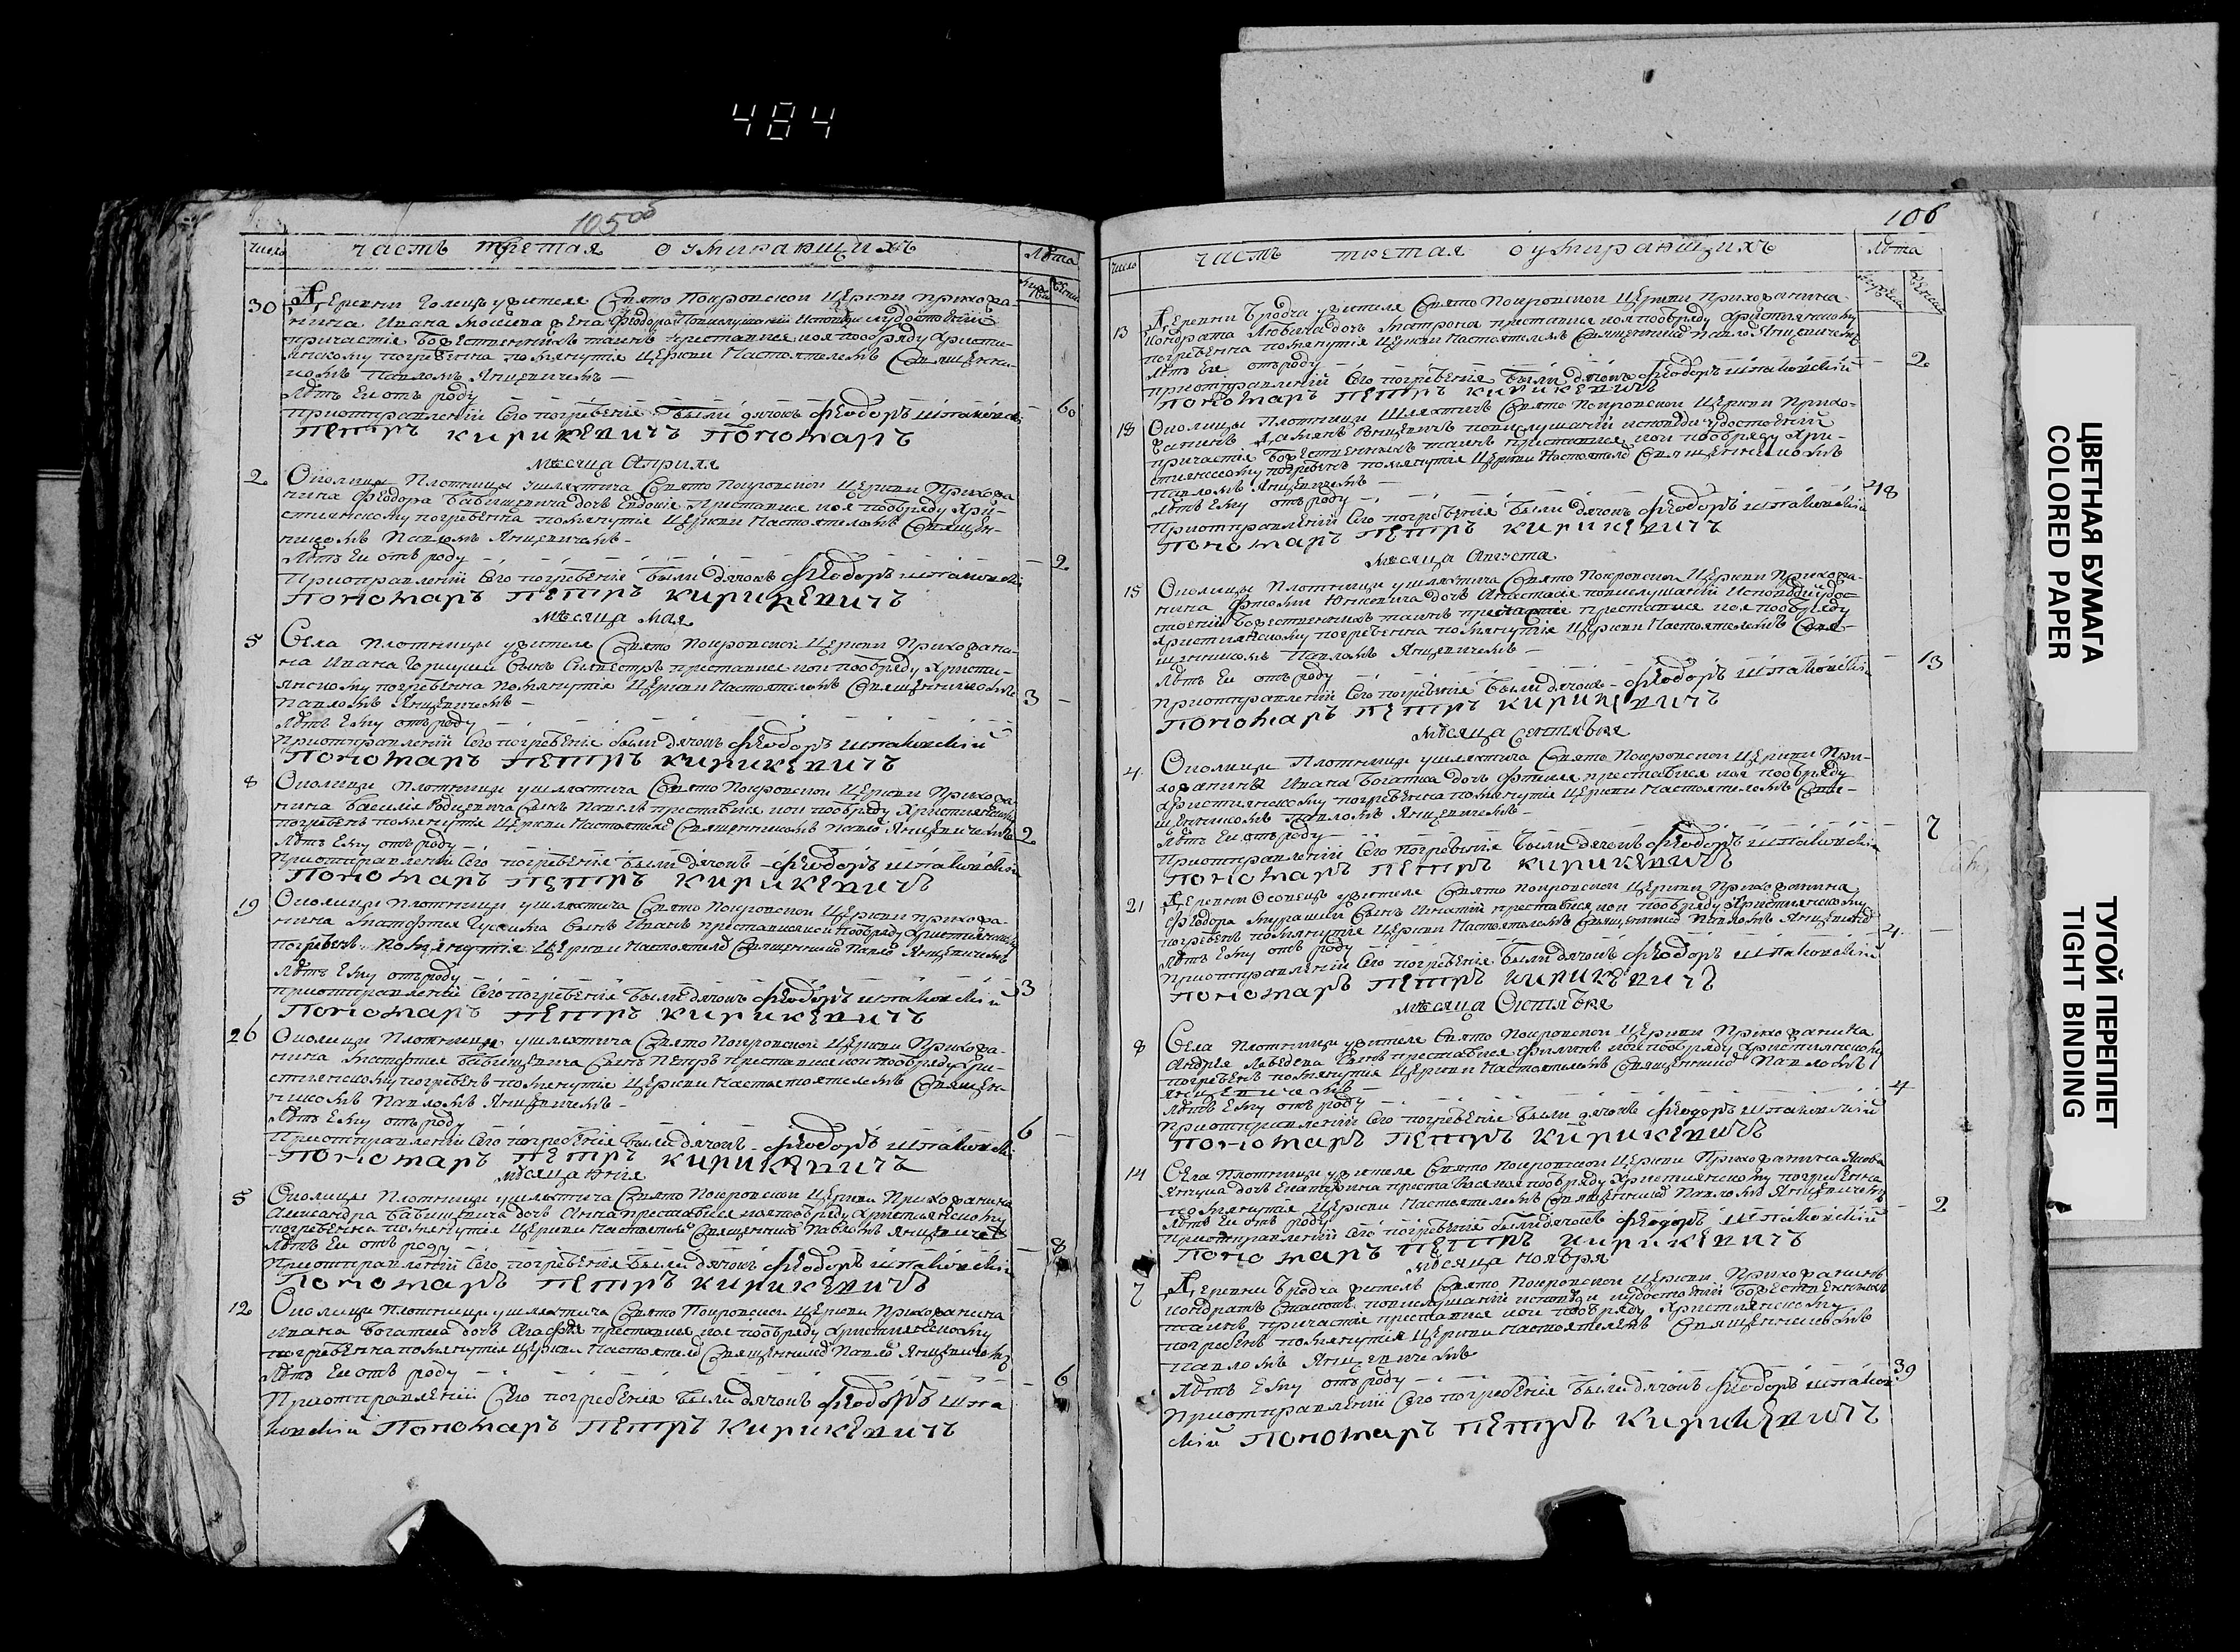 484
105 об
число
часть третая оумирающихъ
Лѣта
30
Деревни Голецъ жителя Свято Покровской Церкви прихожа-
нина Ивана жена Феодора
причастія Божественныхъ таинъ преставися коя пообряду Христи-
янскому погребенна помянутія Церкви Настоятелемъ Священни-
комъ Павломъ Янцевичемъ –
Лѣтъ Еи отъ роду 60
приотправленіи Сего погребенія были дячокъ Феодоръ
Петръ Кирикевичъ Пономаръ
Месяца Априля
2
Околицы Плотницы ушляхтича Свято Покровской Церкви Прихожа
нина Феодора Бабицкевича дочъ Евдокія Преставися коя пообряду Хри-
стиянскому погребенна помянутія Церкви Настоятелемъ Священ-
никомъ Павломъ Янцевичемъ –
Лѣтъ Еи отъ роду 2
Приотправленіи Сего погребенія были дячокъ Феодоръ
Пономаръ Петръ Кирикевичъ
Месяца Мая
5
Села Плотницы жителя Свято Покровской Церкви Прихожани-
на Ивана сынъ Силвестръ преставися кои пообряду Христи-
янскому погребенна Помянутія Церкви Настоятелемъ Священникомъ
Павломъ Янцевичемъ –
Лѣтъ Ему отъ роду 3 –
Приотправленіи Сего погребенія были дячокъ Феодоръ
Пономаръ Петръ Кирикевичъ
8
Околицы Плотницы ушляхтича Свято Покровской Церкви Прихожа-
нина Василія Родцевича сынъ Павелъ преставися кои пообряду Християнскому
погребенъ помянутія Церкви Настоятеле Священникомъ Павло Янцевичемъ
Лѣтъ Ему отъ роду 2
Приотправленіи Сего погребенія были дячокъ – Феодоръ
Пономаръ Петръ Кирикевичъ
19
Околицы Плотницы ушляхтича Свято Покровской Церкви прихожа-
нина сынъ Иванъ преставися кои пообряду Християнскому
погребенъ помянутія Церкви Настоятеле Священнико Павло Янцевичемъ
Лѣтъ Ему отъ роду 3
приотправленіи Сего погребенія были дячокъ Феодоръ
Пономаръ Петръ Кирикевичъ
26
Околицы Плотницы ушляхтича Свято Покровской Церкви Прихожа-
нина Бабицкевича сынъ Петръ преставися кои пообряду Хри-
стиянскому погребенъ помянутія Церкви Настоятелемъ Священ-
никомъ Павломъ Янцевичемъ –
Лѣтъ Ему отъ роду 6 –
Приотправленіи Сего погребенія были дячокъ – Феодоръ
Пономаръ Петръ Кирикевичъ
Месяца Июня
5
Околицы Плотницы ушляхтича Свято Покровской Церкви Прихожанина
Александра Бабицкевича дочъ Анна преставися коя пообряду Християнскому
погребенна помянутія Церкви Настоятеле Священнико Павломъ Янцевиче
Лѣтъ Еи отъ роду 8
Приотправленіи Сего погребенія были дячокъ Феодоръ
Пономаръ Петръ Кирикевичъ
12
Околицы Плотницы ушляхтича Свято Покровской Церкви Прихожанина
Ивана дочъ Агафія преставися коя пообряду Християнскому
погребенна помянутія Церкви Настоятеле Священнико Павло Янцевичемъ
Лѣтъ Еи отъ роду – 6
Приотправленіи Сего погребенія были дячокъ Феодоръ
Пономаръ Петръ Кирикевичъ
106
число
часть третая оумирающихъ
Лѣта
13
Деревни Бродча жителя Свято Покровской Церкви Прихожанина
Кондрата дочъ преставися коя пообряду Християнскому
погребенна помянутія Церкви Настоятелемъ Священнико Павло Янцевичемъ
Лѣтъ Еи отъ роду – 2
приотправленіи Сего погребенія были дячокъ Феодоръ
Пономаръ Петръ Кирикевичъ
18
Околицы Плотницы Шляхтичъ Свято Покровской Церкви Прихо-
жанинъ
причастія Божественныхъ таинъ преставися кои пообряду Хри-
стиянскому погребенъ помянутія Церкви Настоятеле Священникомъ
Павломъ Янцевичемъ –
Лѣтъ Ему отъ роду – 18
Приотправленіи Сего погребенія были дячокъ Феодоръ
Пономаръ Петръ Кирикевичъ
Месяца Августа
15
Околицы Плотницы ушляхтича Свято Покровской Церкви Прихожа-
нина дочъ Анастасія
Божественныхъ таинъ преставися коя пообряду
Християнскому погребенна помянутія Церкви Настоятелемъ Свя-
щенникомъ Павломъ Янцевичемъ –
Лѣтъ Еи отъ роду 13
приотправленіи Сего погребенія были дячокъ – Феодоръ
Пономаръ Петръ Кирикевичъ
Месяца Сентября
4
Околицы Плотницы ушляхтича Свято Покровской Церкви При-
хожанина Ивана дочъ преставися коя пообряду
Християнскому погребенна помянутія Церкви Настоятелемъ Свя-
щенникомъ Павломъ Янцевичемъ –
Лѣтъ Еи отъ роду – 7
Приотправленіи Сего погребенія были дячокъ Феодоръ
Пономаръ Петръ Кирикевичъ
21
Деревни Осовецъ жителя Свято Покровской Церкви Прихожанина
Феодора сынъ Игнатій преставися кои пообряду Християнскому
погребенъ помянутія Церкви Настоятелемъ Священнико Павломъ Янцевиче
Лѣтъ Ему отъ роду 4 –
Приотправленіи Сего погребенія были дячокъ Феодоръ
Пономаръ Петръ Кирикевичъ
Месяца Октября
8
Села Плотницы жителя Свято Покровской Церкви Прихожанина
Андрея Лебедева сынъ преставися Филипъ кои пообряду Християнскому
погребенъ помянутія Церкви Настоятелемъ Священнико Павломъ
Янцевичемъ –
Лѣтъ Ему отъ роду 4
Приотправленіи Сего погребенія были дячокъ Феодоръ
Пономаръ Петръ Кирикевичъ
14
Села Плотницы жителя Свято Покровской Церкви Прихожанина Якова
дочъ Екатерина преставися коя пообряду Християнскому погребенна
помянутія Церкви Настоятелемъ Священнико Павломъ Янцевичемъ
Лѣтъ Еи отъ роду – 2
Приотправленіи Сего погребенія были дячокъ Феодоръ
Пономаръ Петръ Кирикевичъ
Месяца Ноября
7
Деревни Бродча житель Свято Покровской Церкви Прихожанинъ
Кондратъ Божественныхъ
таинъ причастія преставися кои пообряду Християнскому
погребенъ помянутія Церкви Настоятелемъ Священникомъ
Павломъ Янцевичемъ
Лѣтъ Ему отъ роду – 39
Приотправленіи Сего погребенія были дячокъ Феодоръ
Пономаръ Петръ Кирикевичъ
ЦВЕТНАЯ БУМАГА
COLORED PAPER
ТУГОЙ ПЕРЕПЛЕТ
TIGHT BINDING